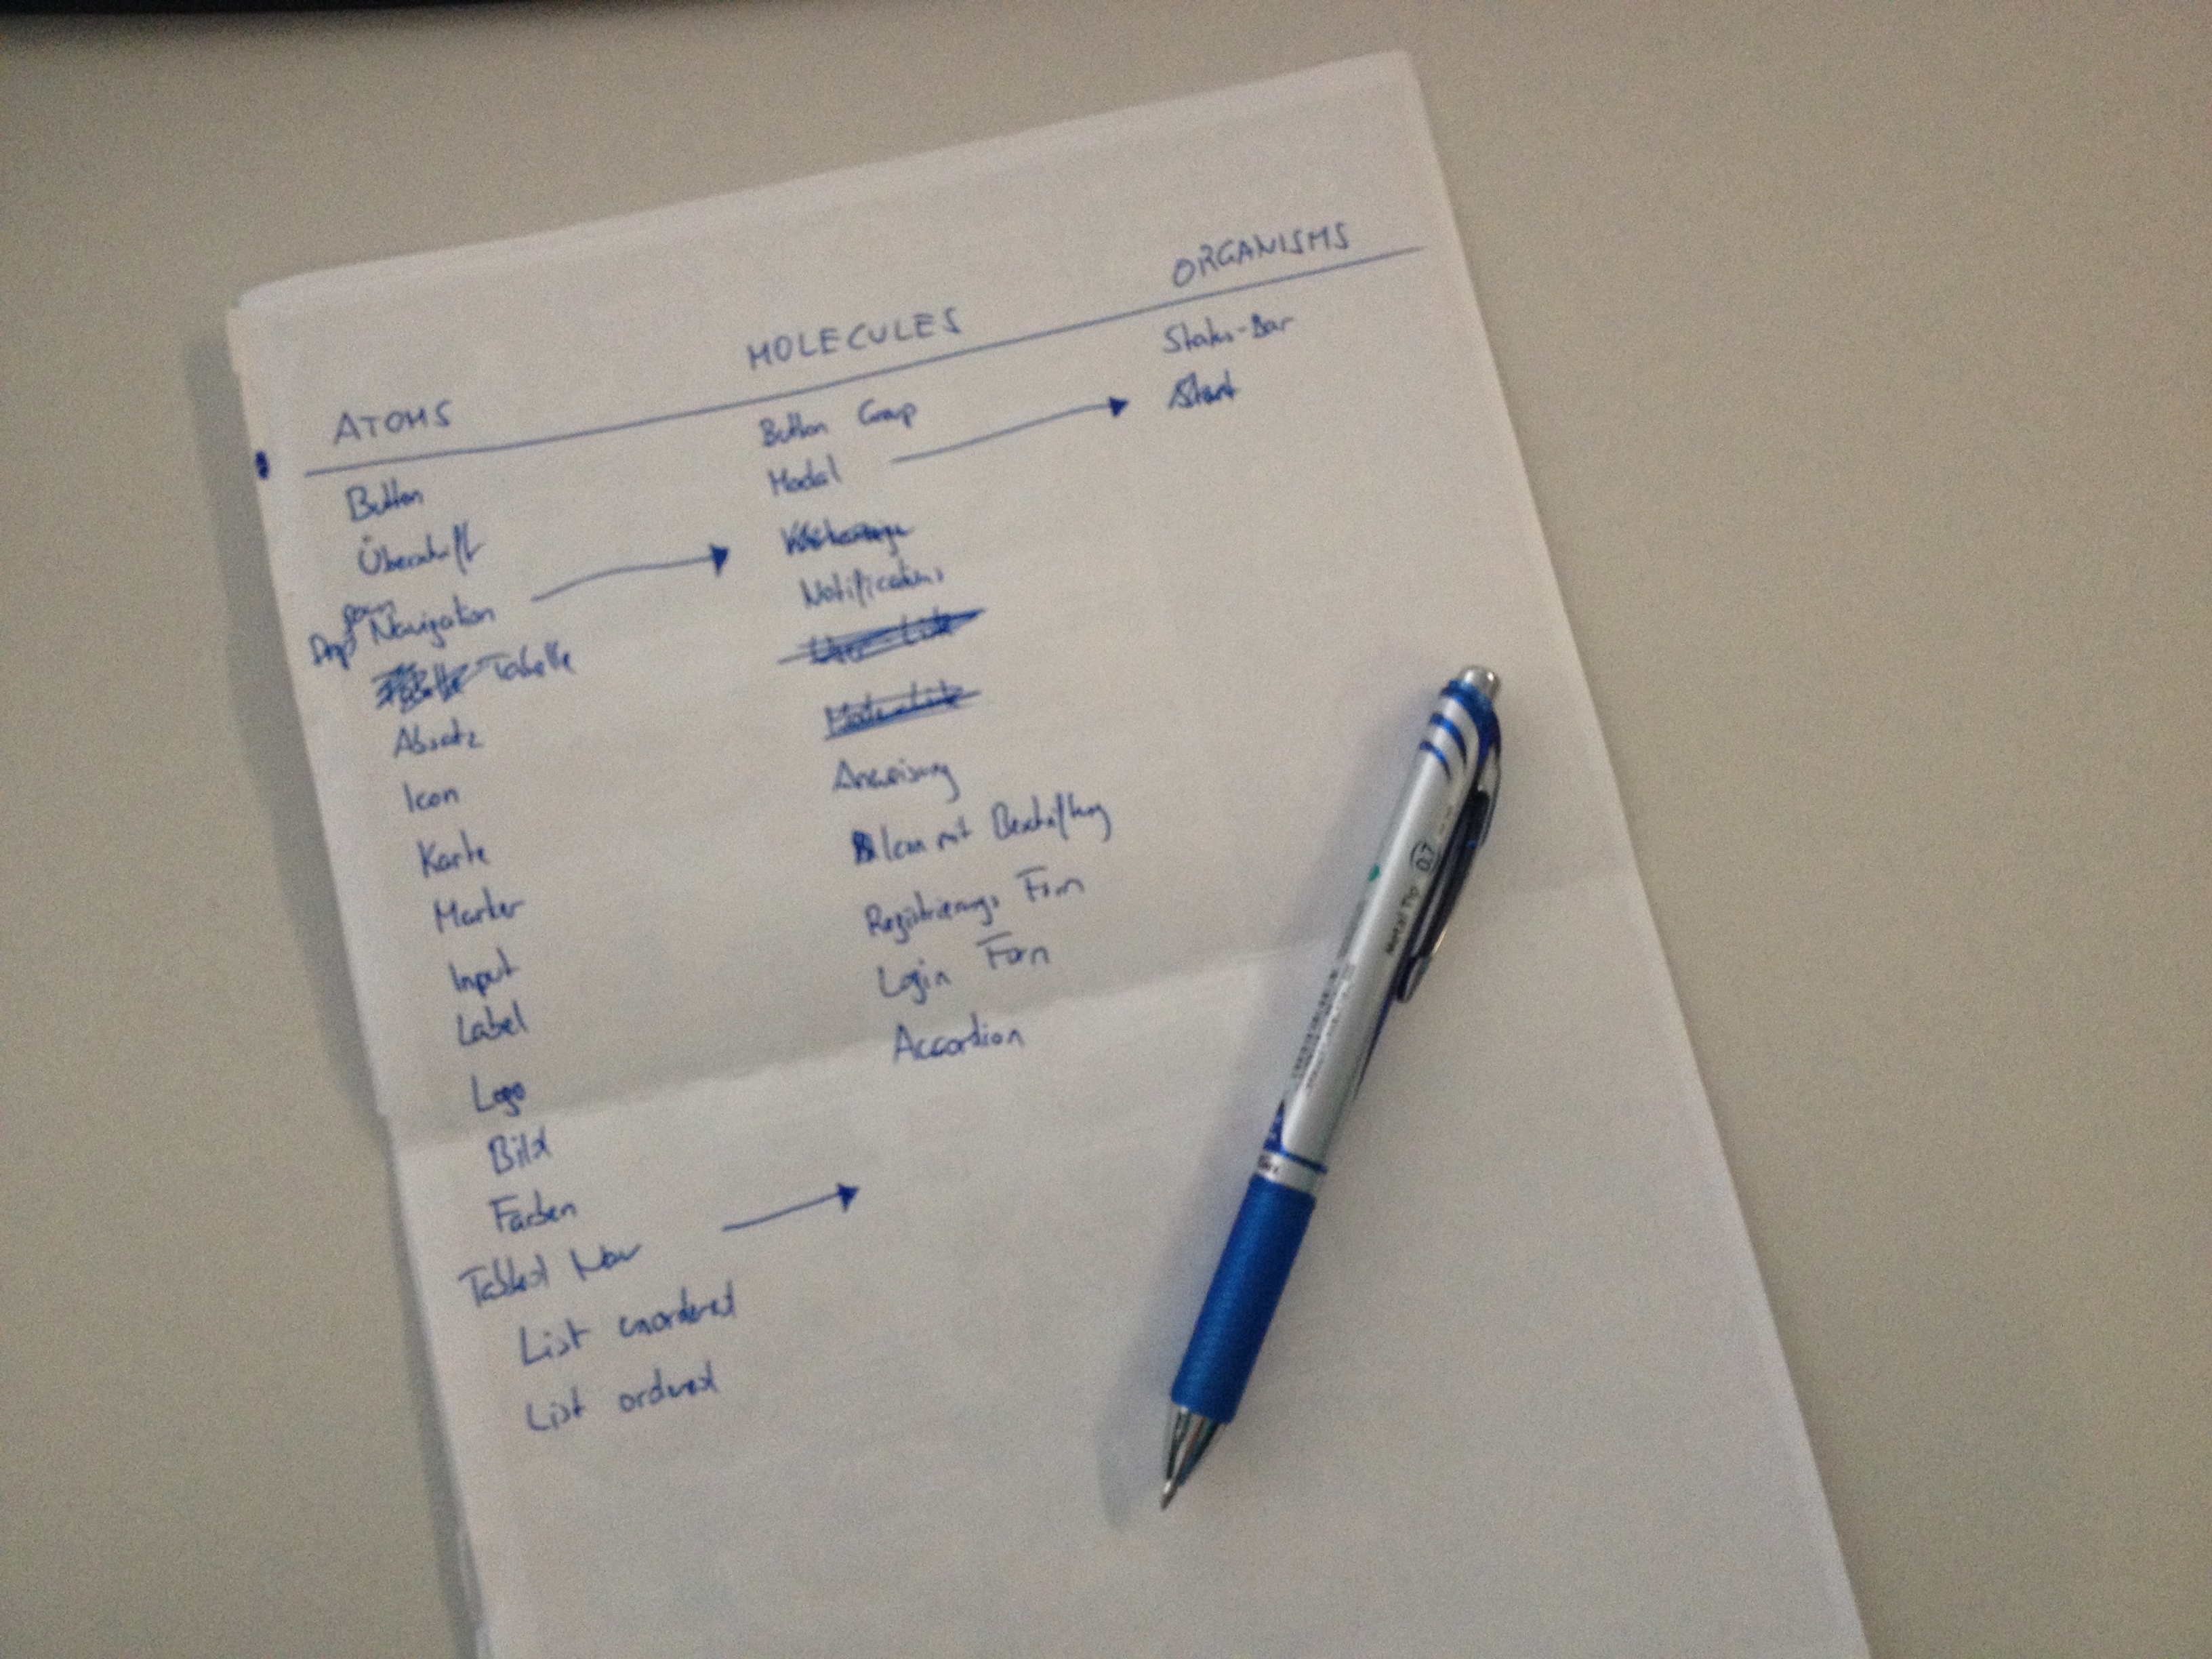 ATOMS
Button
Überschrift
Drop down Navigation
Tabelle
Absatz
Icon
Karte
Marker
Input
Label
Logo
Bild
Farben
Tabbed Nav
List unordered
List ordered
MOLECULES
Button Group
Modal
Notifications
Anweisung
Icon mit Beschriftung
Registrierungs Form
Login Form
Accordion
ORGANISMS
Status-Bar
Start
Metal Tip 0.7